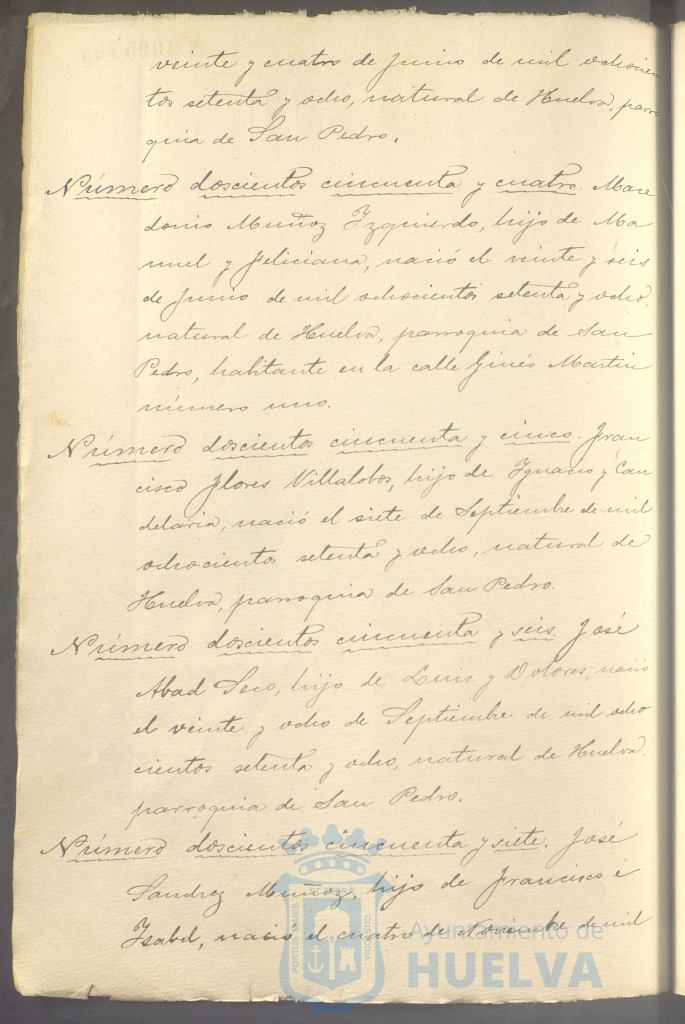 veinte y cuatro de Junio de mil ochocien
tos setenta y ocho, natural de Huelva, parro
quia de San Pedro.
Número doscientos cincuenta y cuatro. Mace
donio Muñoz Izquierdo, hijo de Ma
nuel y Feliciana, nació el veinte y seis
de Junio de mil ochocientos setenta y ocho,
natural de Huelva, parroquia de San
Pedro, habitante en la calle Ginés Martin
número uno.
Número doscientos cincuenta y cinco. Fran
cisco Flores Villalobos, hijo de Ignacio y Can
delaria, nació el siete de Septiembre de mil
ochocientos setenta y ocho, natural de
Huelva, parroquia de San Pedro.
Número doscientos cincuenta y seis. José
Abad Seco, hijo de Luis y Dolores, nació
el veinte y ocho de Septiembre de mil ocho
cientos setenta y ocho, natural de Huelva.
parroquia de San Pedro.
Número doscientos cincuenta y siete. José
Sanchez Muñoz, hijo de Francisco é
Isabel, nació el cuatro de Noviembre de mil
PORTUS MARIS
CUSTODIA
Ayuntamiento de
HUELVA